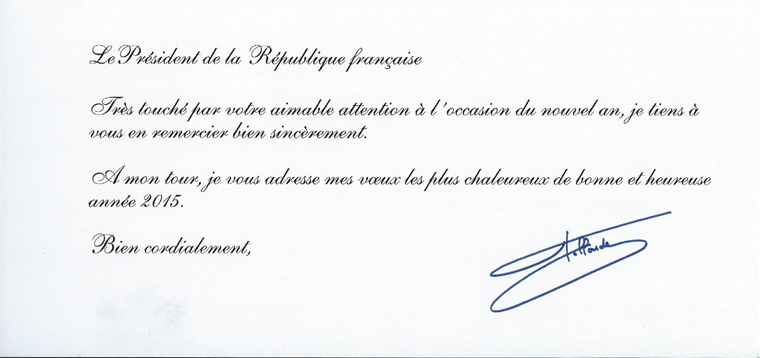 Le Président de la République française
Très touché par votre aimable attention à l'occasion du nouvel an, je tiens à
vous en remercier bien sincèrement.
A mon tour, je vous adresse mes vœux les plus chaleureux de bonne et heureuse
année 2015.
Bien cordialement,
Hollande